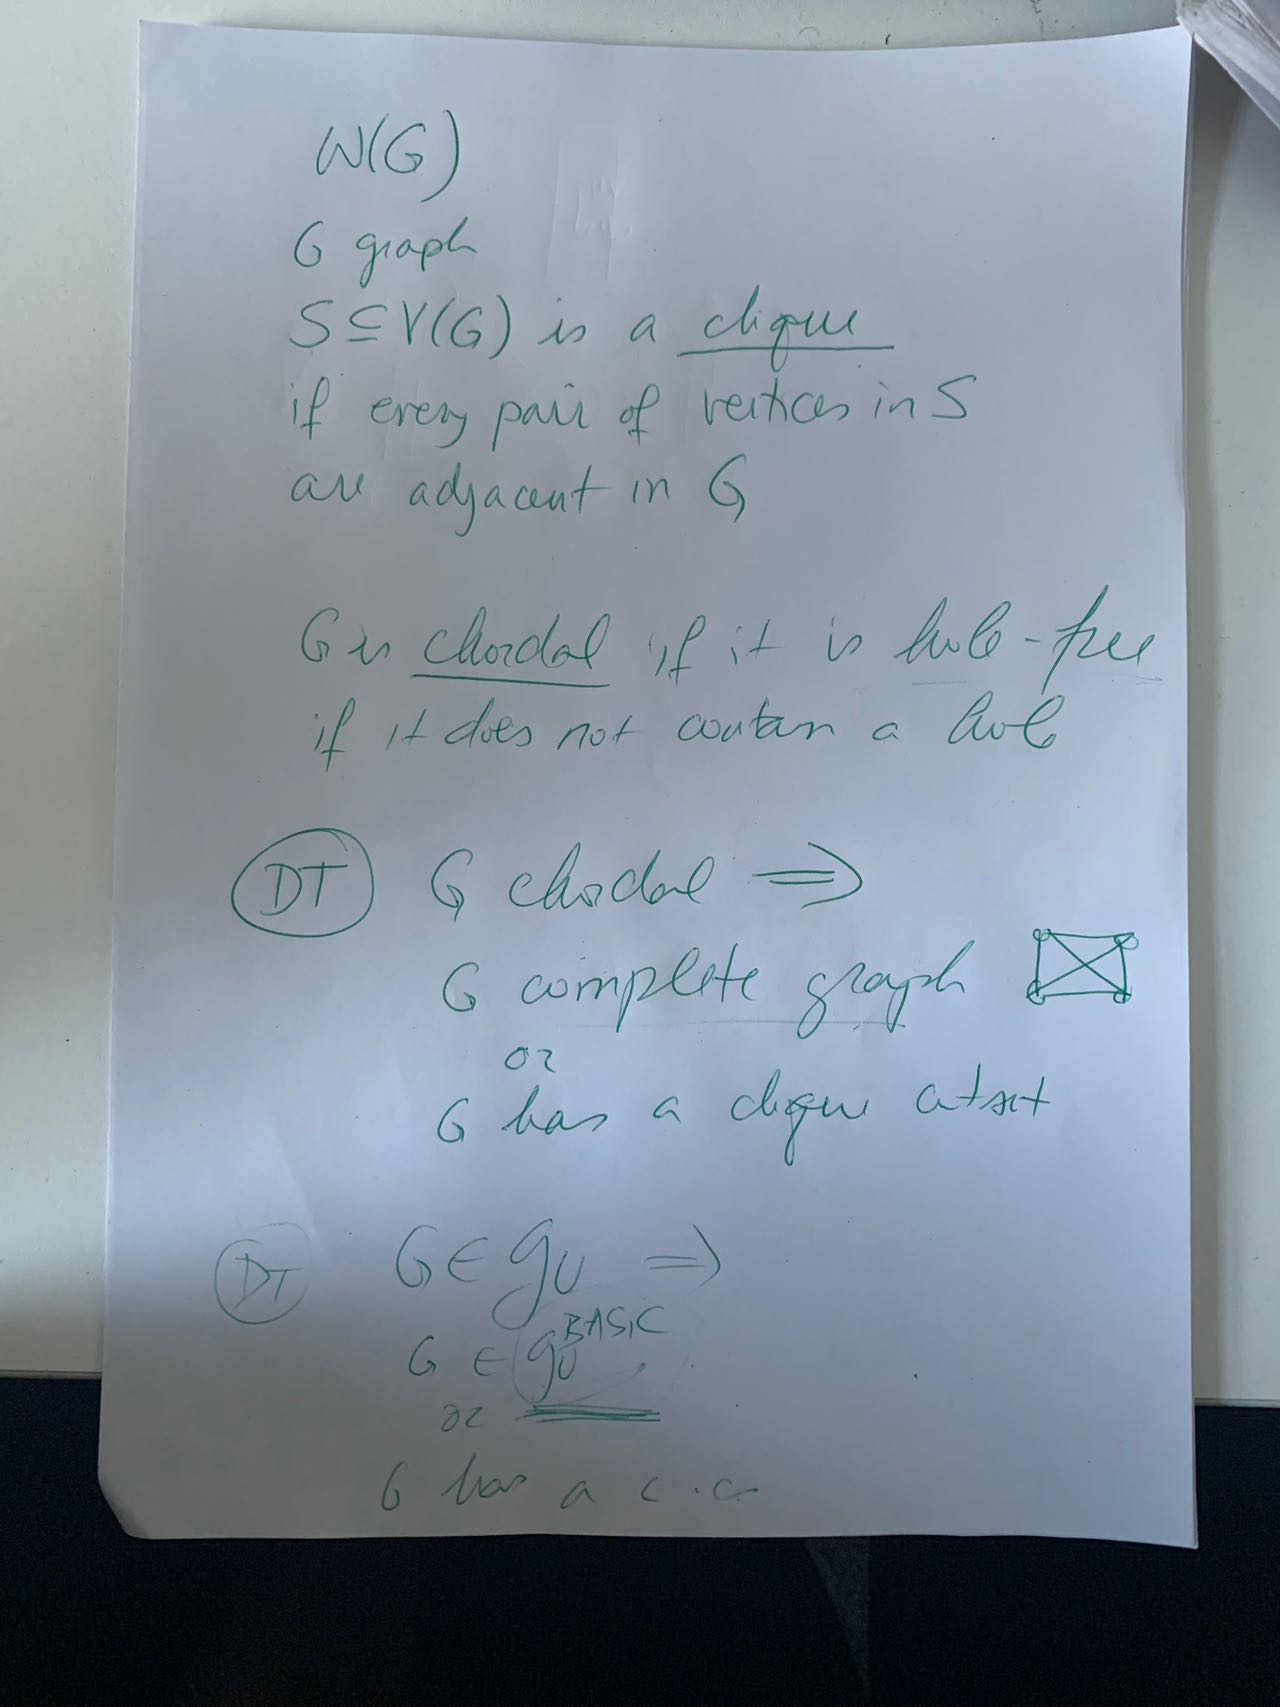 W(G)
G graph
S ⊆ V(G) is a clique
if every pair of vertices in S
are adjacent in G
G is chordal if it is hole-free
if it does not contain a hole
DT G chordal ⇒
G complete graph
or
G has a clique cutset
DT G ∈ 𝒢U ⇒
G ∈ 𝒢U^BASIC
or
G has a c.c.